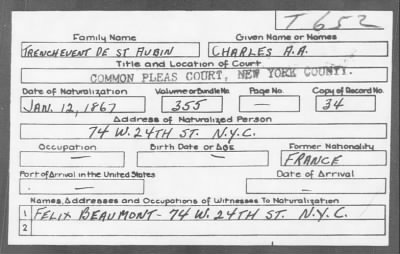 T652
Family Name Given Name or Names
TRENCHEVENT DE ST AUBIN CHARLES A.A.
Title and Location of Court
COMMON PLEAS COURT, NEW YORK COUNTY.
Date of Naturalization Volume or Bundle No. Page No. Copy of Record No.
JAN. 12, 1867 355 — 34
Address of Naturalized Person
74 W. 24TH ST. N.Y.C.
Occupation Birth Date or Age Former Nationality
— — FRANCE
Port of Arrival in the United States Date of Arrival
— —
Names, Addresses and Occupations of Witnesses To Naturalization
1 FELIX BEAUMONT - 74 W. 24TH ST. N.Y.C.
2